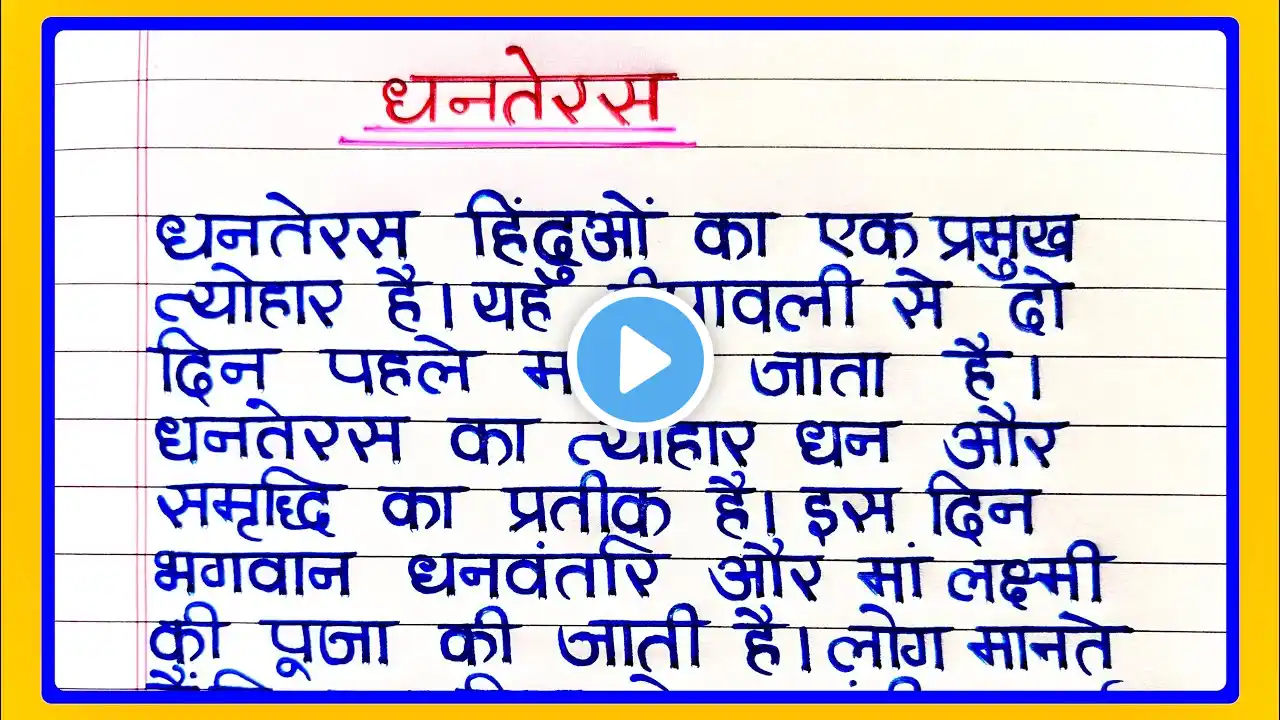 धनतेरस
धनतेरस हिंदुओं का एक प्रमुख
त्योहार है। यह से दो
दिन पहले जाता है।
धनतेरस का त्योहार धन और
समृद्धि का प्रतीक है। इस दिन
भगवान धनवंतरि और मां लक्ष्मी
की पूजा की जाती है। लोग मानते